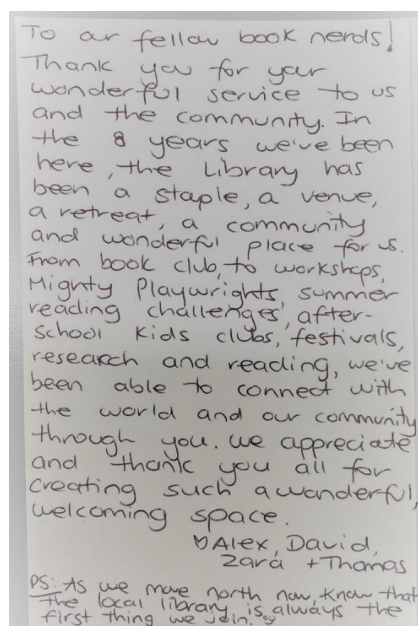 To our fellow book nerds!
Thank you for your
wonderful service to us
and the community. In
the 8 years we've been
here, the Library has
been a staple, a venue,
a retreat, a community
and wonderful place for us.
From book club, to workshops,
Mighty Playwrights, summer
reading challenges, after-
school Kids clubs, festivals,
research and reading, we've
been able to connect with
the world and our community
through you. We appreciate
and thank you all for
creating such a wonderful,
welcoming space.
♡ Alex, David,
Zara + Thomas
PS: As we move north now, know that
the local library is always the
first thing we join.